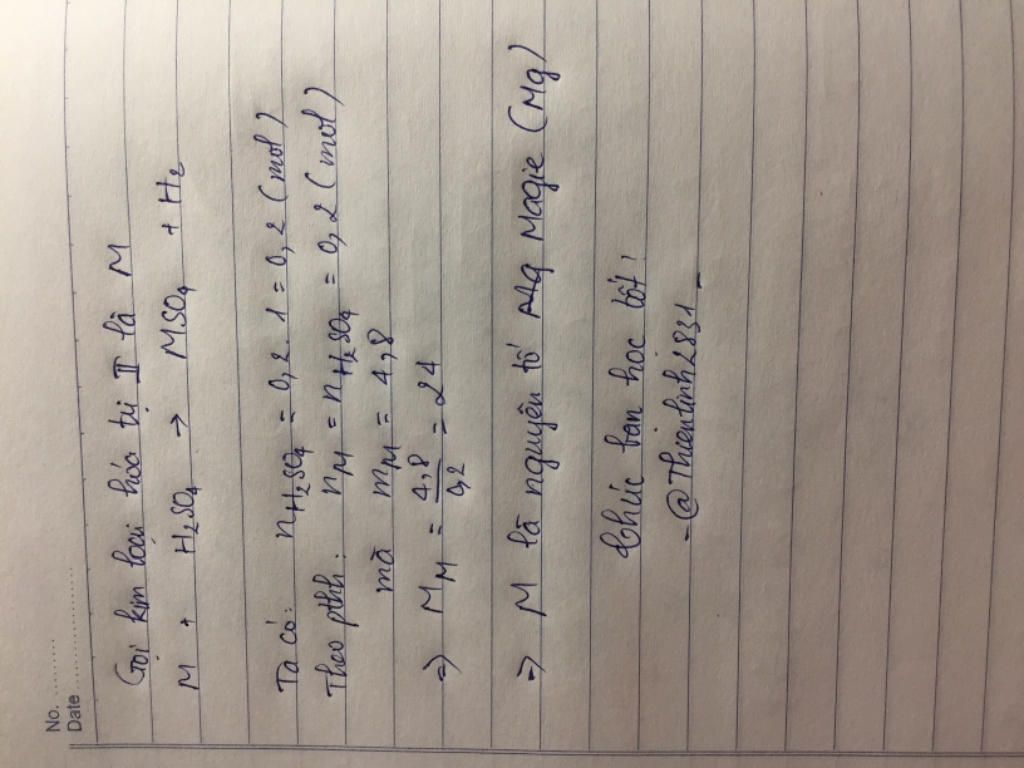 No. ............
Date ........................
Gọi kim loại hóa trị II là M
M + H₂SO₄ → MSO₄ + H₂
Ta có: nH₂SO₄ = 0,2 . 1 = 0,2 (mol)
Theo pthh: nM = nH₂SO₄ = 0,2 (mol)
mà mM = 4,8
=> MM = 4,8/0,2 = 24
=> M là nguyên tố Magie (Mg)
Chúc bạn học tốt!
-@Thienlinh2831_